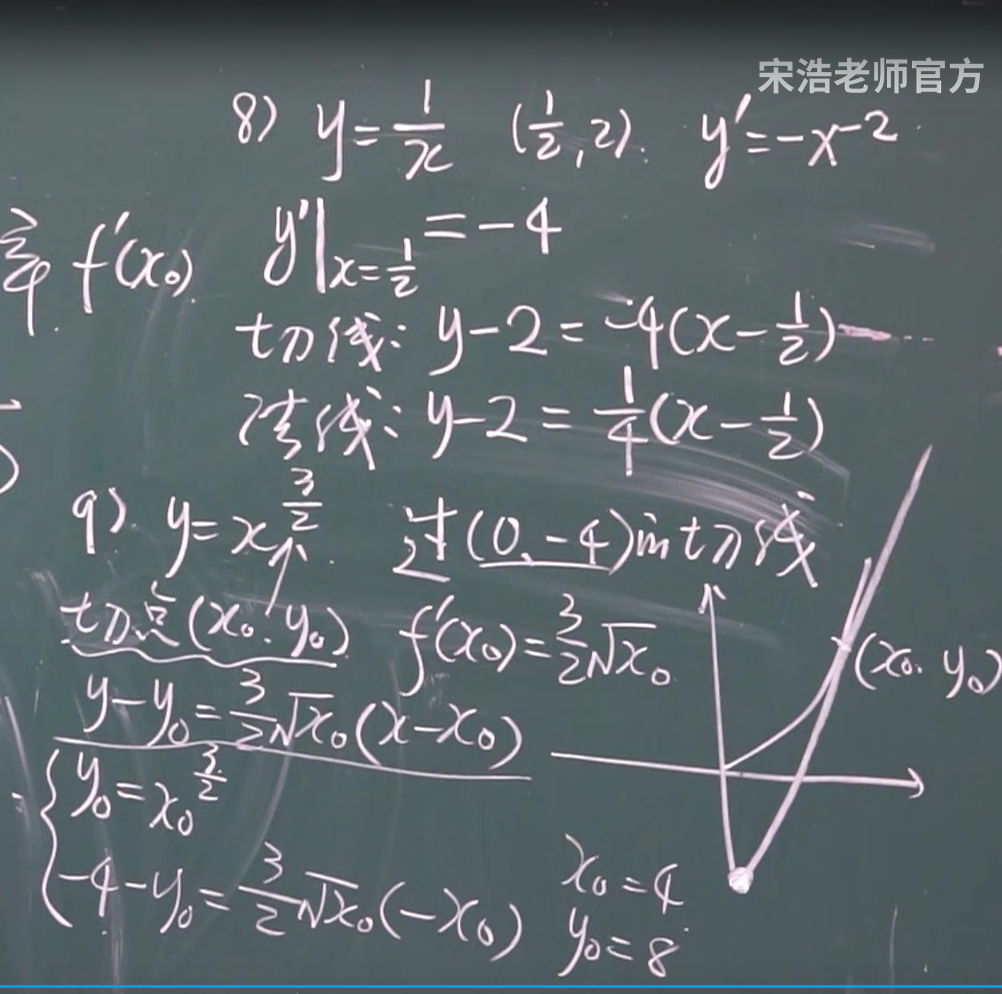 宋浩老师官方
8) y=1/x (1/2,2). y'=-x^-2
率 f'(x₀) y'|x=1/2 =-4
切线: y-2=-4(x-1/2)
法线: y-2=1/4(x-1/2)
9) y=x^3/2 过(0,-4)的切线
切点(x₀.y₀) f'(x₀)=3/2√x₀
(x₀.y₀)
y-y₀=3/2√x₀(x-x₀)
{y₀=x₀^3/2
-4-y₀=3/2√x₀(-x₀) x₀=4
y₀=8